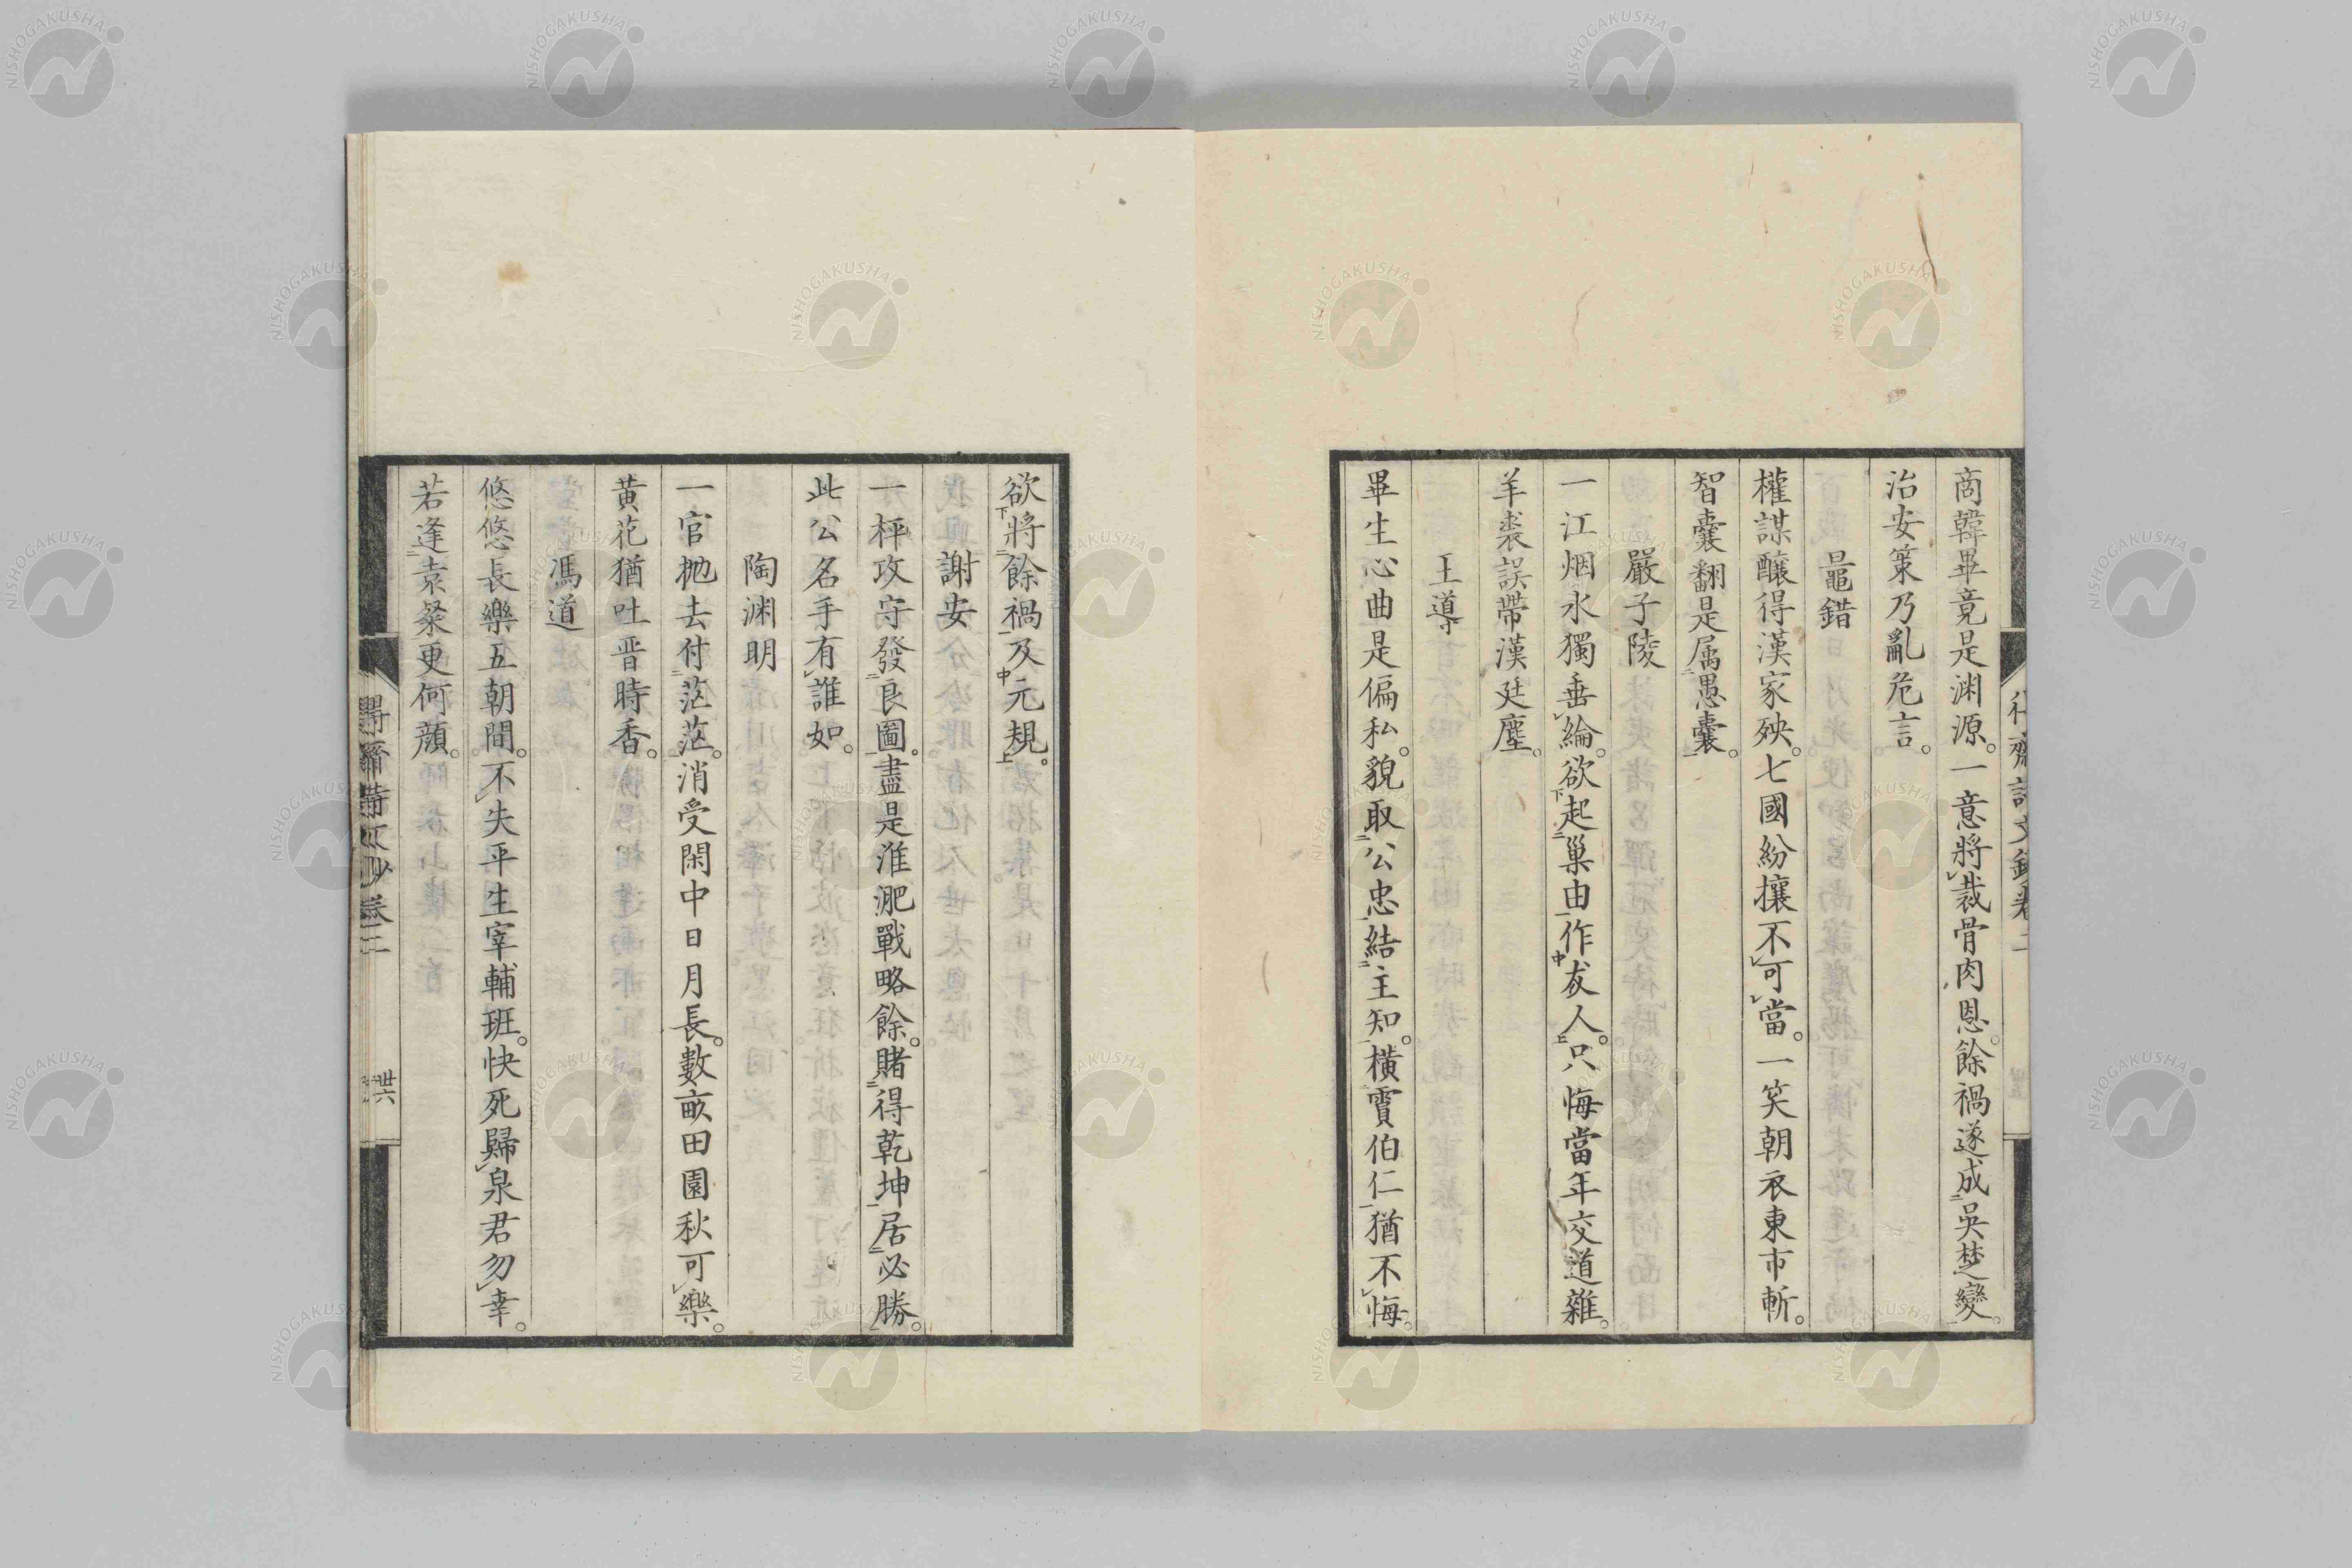 商韓畢竟是渊源。一意將裁骨肉恩。餘禍遂成吳楚變。
治安策乃亂危言。
鼂錯
權謀釀得漢家殃。七國紛攘不可當。一笑朝衣東市斬。
智囊翻是属愚囊。
嚴子陵
一江烟水獨垂綸。欲起巢由作友人。只悔當年交道雜。
羊裘誤帶漢廷塵。
王導
畢生心曲是偏私。貌取公忠結主知。橫霣伯仁猶不悔。
欲將餘禍及元規。
謝安
一枰攻守發良圖。盡是淮淝戰略餘。賭得乾坤居必勝。
此公名手有誰如。
陶渊明
一官抛去付茫茫。消受閑中日月長。數畝田園秋可樂。
黃花猶吐晋時香。
馮道
悠悠長樂五朝間。不失平生宰輔班。快死歸泉君勿幸。
若逢袁粲更何顔。
卷二
卅六
NISHOGAKUSHA